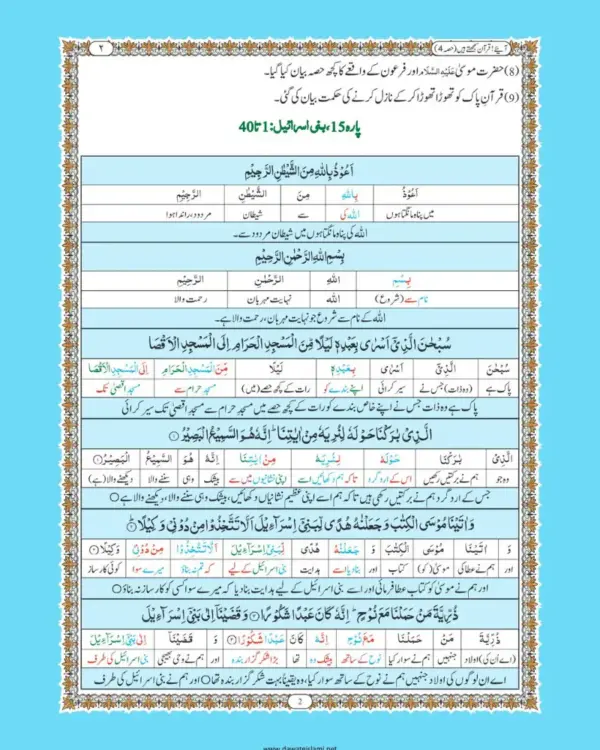 آیئے! قرآن سمجھتے ہیں (حصہ 4) ۲
(8) حضرت موسیٰ عَلَیْہِ السَّلَام اور فرعون کے واقعے کا کچھ حصہ بیان کیا گیا۔
(9) قرآنِ پاک کو تھوڑا تھوڑا کر کے نازل کرنے کی حکمت بیان کی گئی۔
پارہ 15، بنی اسرائیل: 1 تا 40
اَعُوْذُ بِاللّٰهِ مِنَ الشَّیْطٰنِ الرَّجِیْمِ
اَعُوْذُ بِاللّٰهِ مِنَ الشَّیْطٰنِ الرَّجِیْمِ
میں پناہ مانگتا ہوں اللہ کی سے شیطان مردود، راندا ہوا
اللہ کی پناہ مانگتا ہوں میں شیطان مردود سے۔
بِسْمِ اللّٰهِ الرَّحْمٰنِ الرَّحِیْمِ
بِسْمِ اللّٰهِ الرَّحْمٰنِ الرَّحِیْمِ
نام سے (شروع) اللہ نہایت مہربان رحمت والا
اللہ کے نام سے شروع جو نہایت مہربان، رحمت والا ہے۔
سُبْحٰنَ الَّذِیْۤ اَسْرٰى بِعَبْدِهٖ لَیْلًا مِّنَ الْمَسْجِدِ الْحَرَامِ اِلَى الْمَسْجِدِ الْاَقْصَا
سُبْحٰنَ الَّذِیْۤ اَسْرٰى بِعَبْدِهٖ لَیْلًا مِّنَ الْمَسْجِدِ الْحَرَامِ اِلَى الْمَسْجِدِ الْاَقْصَا
پاک ہے (وہ ذات) جس نے سیر کرائی اپنے بندے کو رات کے کچھ حصے (میں) مسجدِ حرام سے مسجدِ اقصیٰ تک
پاک ہے وہ ذات جس نے اپنے خاص بندے کو رات کے کچھ حصے میں مسجد حرام سے مسجد اقصیٰ تک سیر کرائی
الَّذِیْ بٰرَكْنَا حَوْلَهٗ لِنُرِیَهٗ مِنْ اٰیٰتِنَاؕ اِنَّهٗ هُوَ السَّمِیْعُ الْبَصِیْرُ۝۱
الَّذِیْ بٰرَكْنَا حَوْلَهٗ لِنُرِیَهٗ مِنْ اٰیٰتِنَا اِنَّهٗ هُوَ السَّمِیْعُ الْبَصِیْرُ۝۱
وہ جو ہم نے برکتیں رکھیں اس کے ارد گرد تاکہ ہم دکھائیں اسے اپنی نشانیوں میں سے بیشک وہی سننے والا دیکھنے والا (ہے)
جس کے ارد گرد ہم نے برکتیں رکھی ہیں تاکہ ہم اسے اپنی عظیم نشانیاں دکھائیں، بیشک وہی سننے والا، دیکھنے والا ہے۝
وَ اٰتَیْنَا مُوْسَى الْكِتٰبَ وَ جَعَلْنٰهُ هُدًى لِّبَنِیْۤ اِسْرَآءِیْلَ اَلَّا تَتَّخِذُوْا مِنْ دُوْنِیْ وَكِیْلًاؕ۝۲
وَ اٰتَیْنَا مُوْسَى الْكِتٰبَ وَ جَعَلْنٰهُ هُدًى لِّبَنِیْۤ اِسْرَآءِیْلَ اَلَّا تَتَّخِذُوْا مِنْ دُوْنِیْ وَكِیْلًا۝۲
اور ہم نے عطا کی موسیٰ (کو) کتاب اور بنا دیا اسے ہدایت بنی اسرائیل کے لیے کہ تم نہ بناؤ میرے سوا کوئی کارساز
اور ہم نے موسیٰ کو کتاب عطا فرمائی اور اسے بنی اسرائیل کے لیے ہدایت بنا دیا کہ میرے سوا کسی کو کارساز نہ بناؤ۝
ذُرِّیَّةَ مَنْ حَمَلْنَا مَعَ نُوْحٍؕ اِنَّهٗ كَانَ عَبْدًا شَكُوْرًا۝۳ وَ قَضَیْنَاۤ اِلٰى بَنِیْۤ اِسْرَآءِیْلَ
ذُرِّیَّةَ مَنْ حَمَلْنَا مَعَ نُوْحٍ اِنَّهٗ كَانَ عَبْدًا شَكُوْرًا۝۳ وَ قَضَیْنَاۤ اِلٰى بَنِیْۤ اِسْرَآءِیْلَ
(اے ان کی) اولاد جنہیں ہم نے سوار کیا نوح کے ساتھ بیشک وہ تھا بڑا شکر گزار بندہ اور ہم نے وحی بھیجی بنی اسرائیل کی طرف
اے ان لوگوں کی اولاد جنہیں ہم نے نوح کے ساتھ سوار کیا، وہ یقیناً بہت شکر گزار بندہ تھا۝ اور ہم نے بنی اسرائیل کی طرف
2
www.dawateislami.net